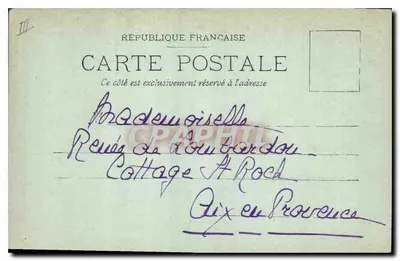 III
RÉPUBLIQUE FRANÇAISE
CARTE POSTALE
Ce côté est exclusivement réservé à l'adresse
Mademoiselle
Renée de Lombardon
Cottage St Roch
Aix en Provence